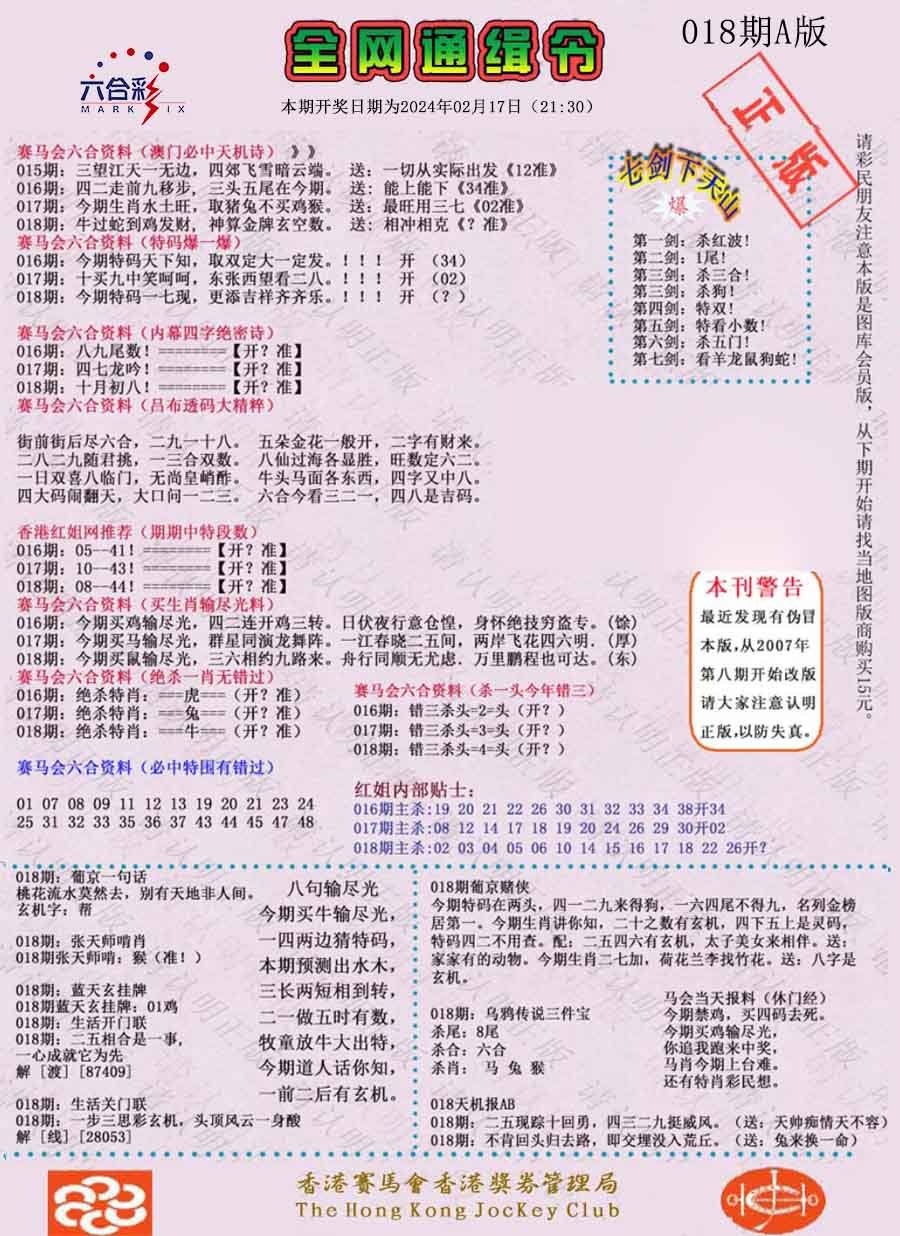 六合彩
MARK SIX
全网通缉令
018期A版
本期开奖日期为2024年02月17日（21:30）
正版
赛马会六合资料（澳门必中天机诗）》》
015期: 三望江天一无边, 四郊飞雪暗云端。 送: 一切从实际出发《12准》
016期: 四二走前九移步, 三头五尾在今期。 送: 能上能下《34准》
017期: 今期生肖水土旺, 取猪兔不买鸡猴。 送: 最旺用三七《02准》
018期: 牛过蛇到鸡发财, 神算金牌玄空数。 送: 相冲相克《? 准》
赛马会六合资料（特码爆一爆）
016期: 今期特码天下知, 取双定大一定发。！！！ 开 （34）
017期: 十买九中笑呵呵, 东张西望看二八。！！！ 开 （02）
018期: 今期特码一七现, 更添吉祥齐齐乐。！！！ 开 （？）
七剑下天山
爆
第一剑: 杀红波!
第二剑: 1尾!
第三剑: 杀三合!
第三剑: 杀狗!
第四剑: 特双!
第五剑: 特看小数!
第六剑: 杀五门!
第七剑: 看羊龙鼠狗蛇!
请彩民朋友注意本版是图库会员版，从下期开始请找当地图版商购买15元。
赛马会六合资料（内幕四字绝密诗）
016期: 八九尾数! ========【开? 准】
017期: 四七龙吟! ========【开? 准】
018期: 十月初八! ========【开? 准】
赛马会六合资料（吕布透码大精粹）
街前街后尽六合, 二九一十八。 五朵金花一般开, 二字有财来。
二八二九随君挑, 一三合双数。 八仙过海各显胜, 旺数定六二。
一日双喜八临门, 无尚皇峭酢。 牛头马面各东西, 四字又中八。
四大码闹翻天, 大口问一二三。 六合今看三二一, 四八是吉码。
香港红姐网推荐（期期中特段数）
016期: 05--41! ========【开? 准】
017期: 10--43! ========【开? 准】
018期: 08--44! ========【开? 准】
赛马会六合资料（买生肖输尽光料）
016期: 今期买鸡输尽光, 四二连开鸡三转。日伏夜行意仓惶, 身怀绝技穷盗专。(馀)
017期: 今期买马输尽光, 群星同演龙舞阵。一江春晓二五间, 两岸飞花四六明. (厚)
018期: 今期买鼠输尽光, 三六相约九路来。舟行同顺无尤虑. 万里鹏程也可达。(东)
本刊警告
最近发现有伪冒
本版,从2007年
第八期开始改版
请大家注意认明
正版,以防失真。
赛马会六合资料（绝杀一肖无错过）
016期: 绝杀特肖: ===虎=（开? 准）
017期: 绝杀特肖: ===兔=（开? 准）
018期: 绝杀特肖: ===牛=（开? 准）
赛马会六合资料（杀一头今年错三）
016期: 错三杀头=2=头（开? ）
017期: 错三杀头=3=头（开? ）
018期: 错三杀头=4=头（开? ）
赛马会六合资料（必中特围有错过）
01 07 08 09 11 12 13 19 20 21 23 24
25 31 32 33 35 36 37 43 44 45 47 48
红姐内部贴士:
016期主杀:19 20 21 22 26 30 31 32 33 34 38开34
017期主杀:08 12 14 17 18 19 20 24 26 29 30开02
018期主杀:02 03 04 05 06 10 14 15 16 17 18 22 26开?
018期: 葡京一句话
桃花流水莫然去, 别有天地非人间。
玄机字: 帮
018期: 张天师啃肖
018期张天师啃: 猴（准! ）
018期: 蓝天玄挂牌
018期蓝天玄挂牌: 01鸡
018期: 生活开门联
018期: 二五相合是一事,
一心成就它为先
解 [渡] [87409]
018期: 生活关门联
018期: 一步三思彩玄机, 头顶风云一身酸
解 [线] [28053]
八句输尽光
今期买牛输尽光,
一四两边猜特码,
本期预测出水木,
三长两短相到转,
二一做五时有数,
牧童放牛大出特,
今期道人话你知,
一前二后有玄机。
018期葡京赌侠
今期特码在两头, 四一二九来得狗, 一六四尾不得九, 名列金榜
居第一。今期生肖讲你知, 二十之数有玄机, 四下五上是灵码,
特码四二不用查。配: 二五四六有玄机, 太子美女来相伴。送:
家家有的动物。今期生肖二七加, 荷花兰李找竹花。送: 八字是
玄机。
018期: 乌鸦传说三件宝
杀尾: 8尾
杀合: 六合
杀肖: 马 兔 猴
马会当天报料（休门经）
今期禁鸡, 买四码去死。
今期买鸡输尽光,
你追我跑来中奖,
马肖今期上台难。
还有特肖彩民想。
018天机报AB
018期: 二五现踪十回勇, 四三二九挺威风。（送: 天帅痴情天不容）
018期: 不肯回头归去路, 即交埋没入荒丘。（送: 兔来换一命）
香港賽馬會香港獎券管理局
The Hong Kong JocKey Club